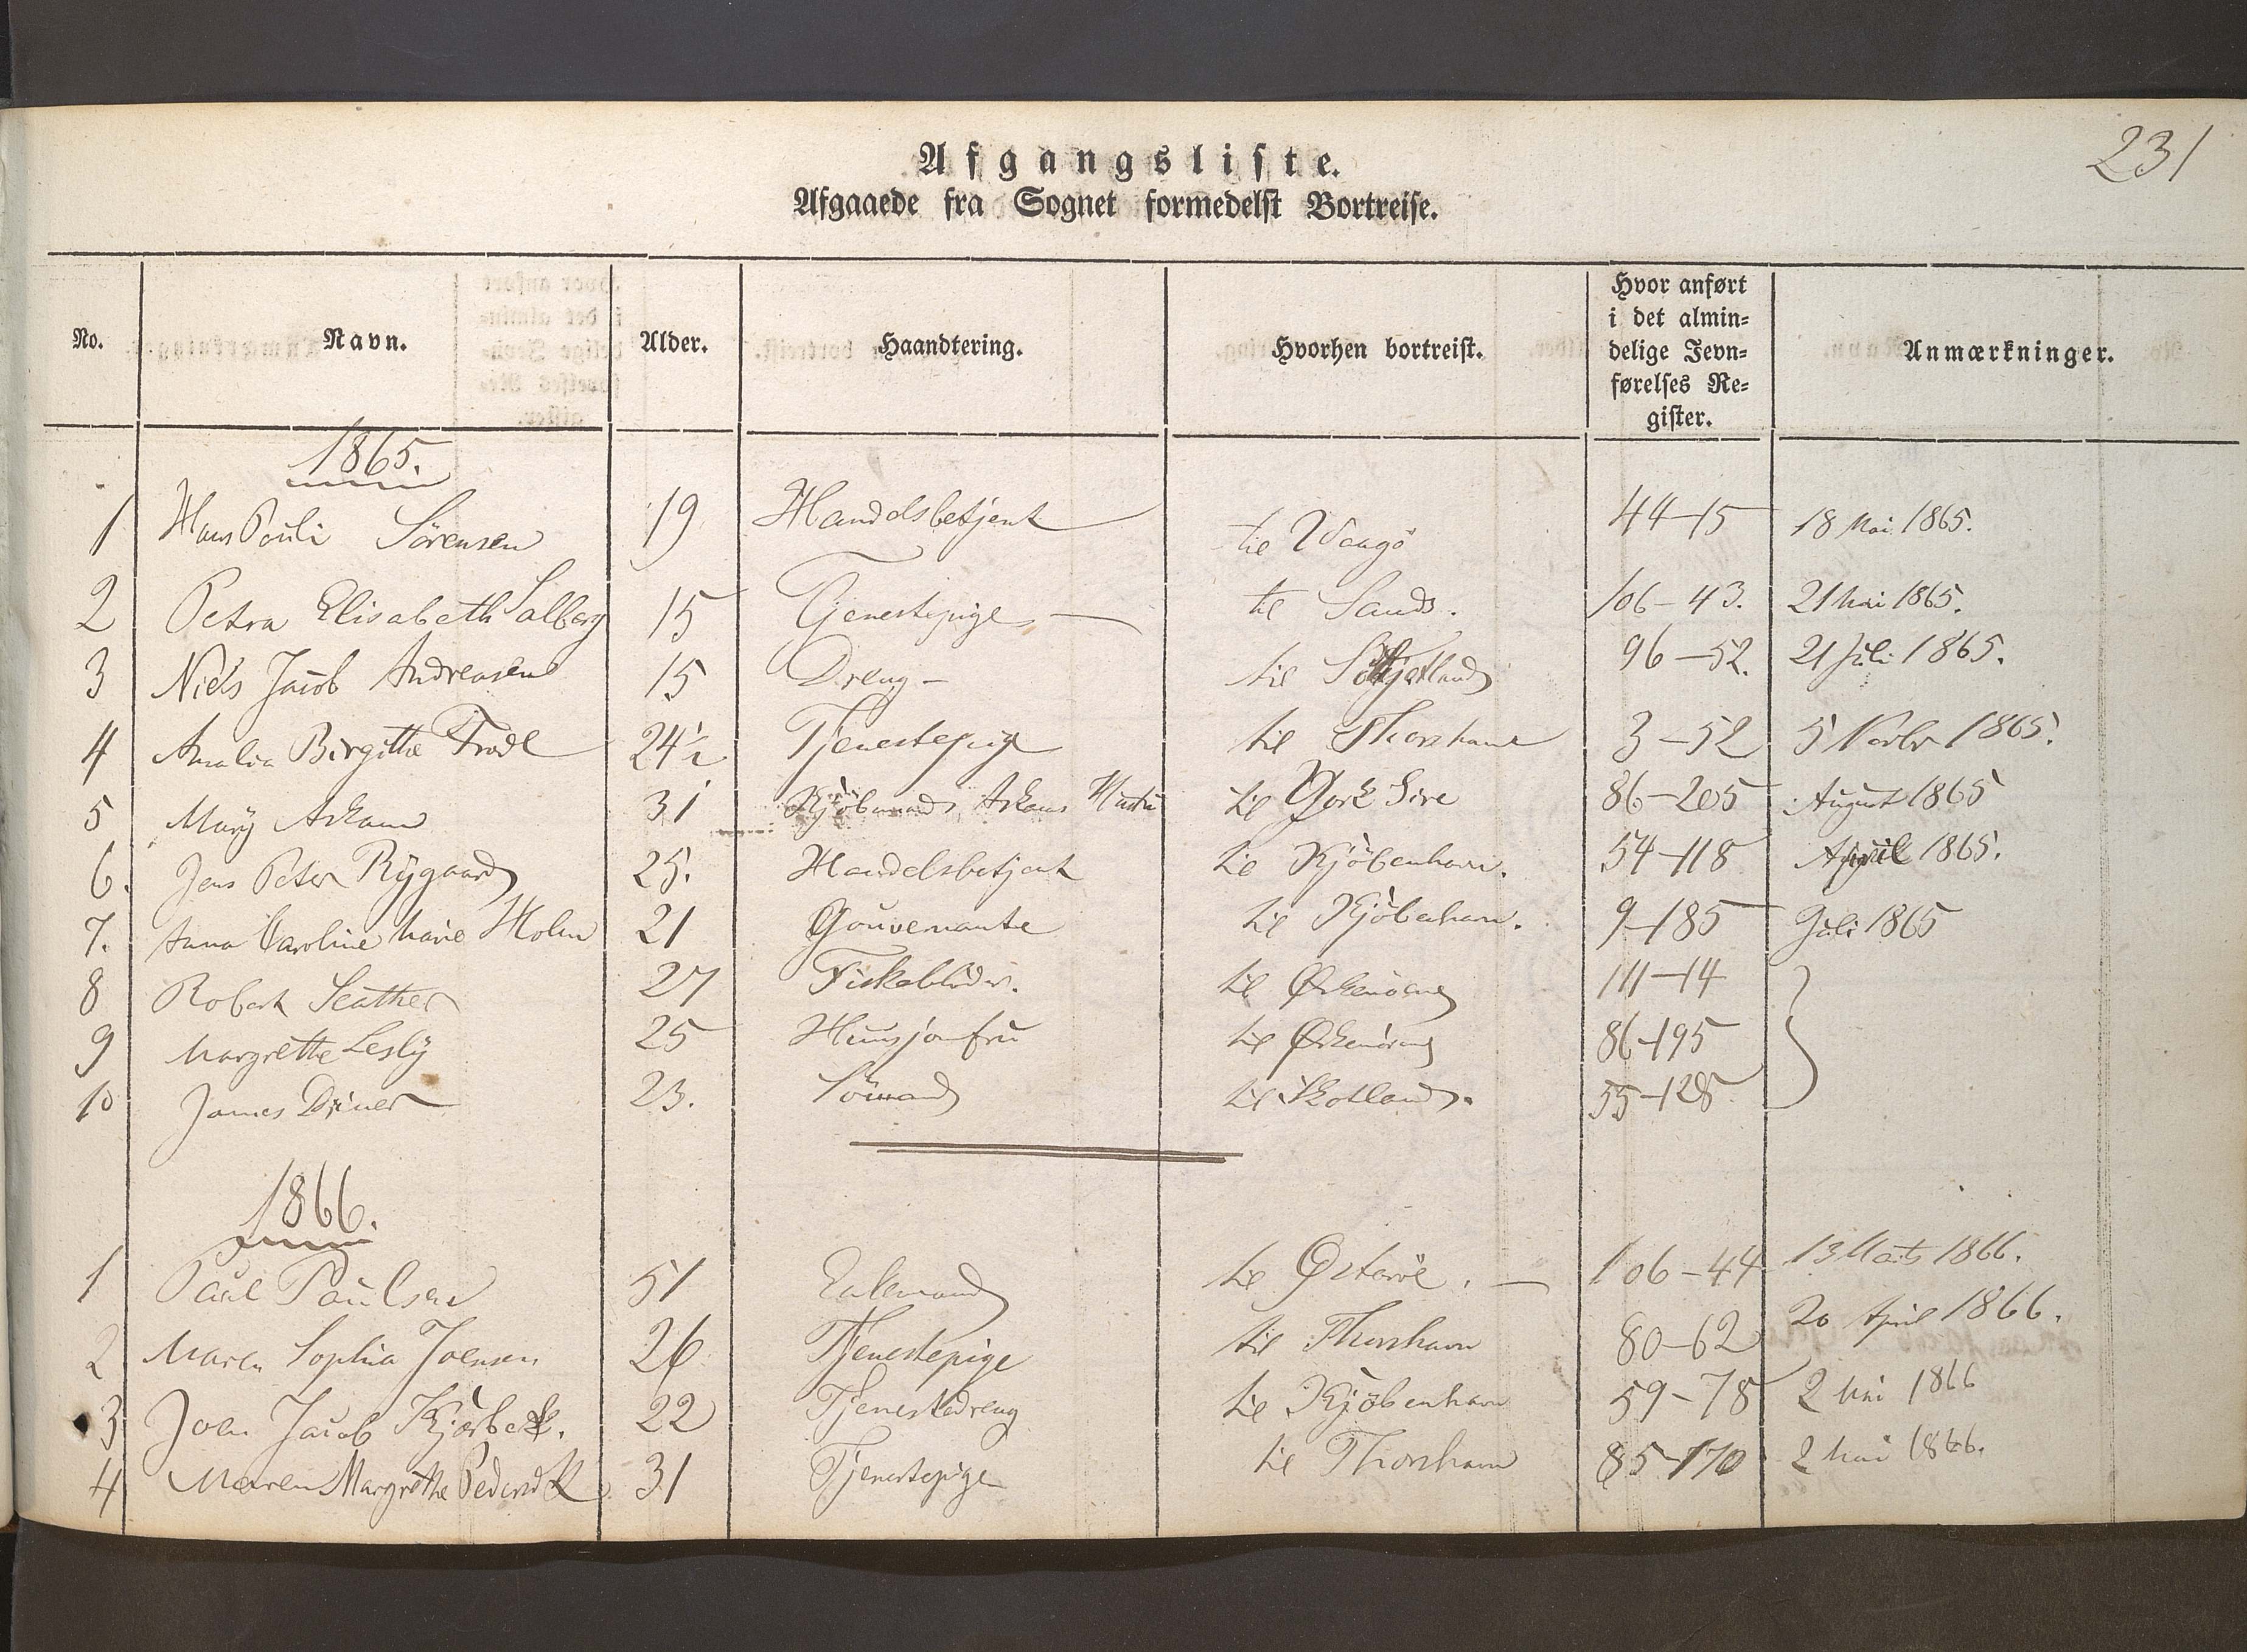 231
Afgangsliste.
Afgaaede fra Sognet formedelst Bortreise.
No. Navn. Alder. Haandtering. Hvorhen bortreist. Hvor anført i det almin= delige Jevn= førelses Re= gister. Anmærkninger.
1865.
1 Hans Pouli Sörensen 19 Handelsbetjent til Waagö 44-15 18 Mai 1865.
2 Petra Elisabeth Salberg 15 Tjenestepige til Sands. 106-43. 21 Mai 1865.
3 Niels Jacob Andreasen 15 Dreng til 96-52. 21 Juli 1865.
4 Amalia Birgitte Tradl 24½ Tjenestepige til Thorshavn 3-52 5 Novbr 1865.
5 Mary Askam 31 Kjöbmands Askams Hustru til York Sire 86-205 August 1865
6. Jens Peter Rÿgaard 25. Handelsbetjent til Kjöbenhavn. 54-118 April 1865.
7. Anna Caroline Marie Holm 21 Gouvernante til Kjöbenhavn. 9-185 Juli 1865
8 Robert 27 til Ørkenöerne 111-14
9 Margrethe Leslÿ 25 Huusjomfru til Ørkenöerne 86-195
10 James 23. Sömand til Skotland. 55-128
1866.
1 Paul Paulsen 51 Enkemand til Østeröe. 106-44 13 Marts 1866.
2 Maren Sophia Joensen 26 Tjenestepige til Thorshavn 80-62 20 April 1866.
3 Joen Jacob Kjærbæk. 22 Tjenestedreng til Kjöbenhavn 59-78 2 Mai 1866
4 Maren Margrethe 31 Tjenestepige til Thorshavn 85-170 2 Mai 1866.